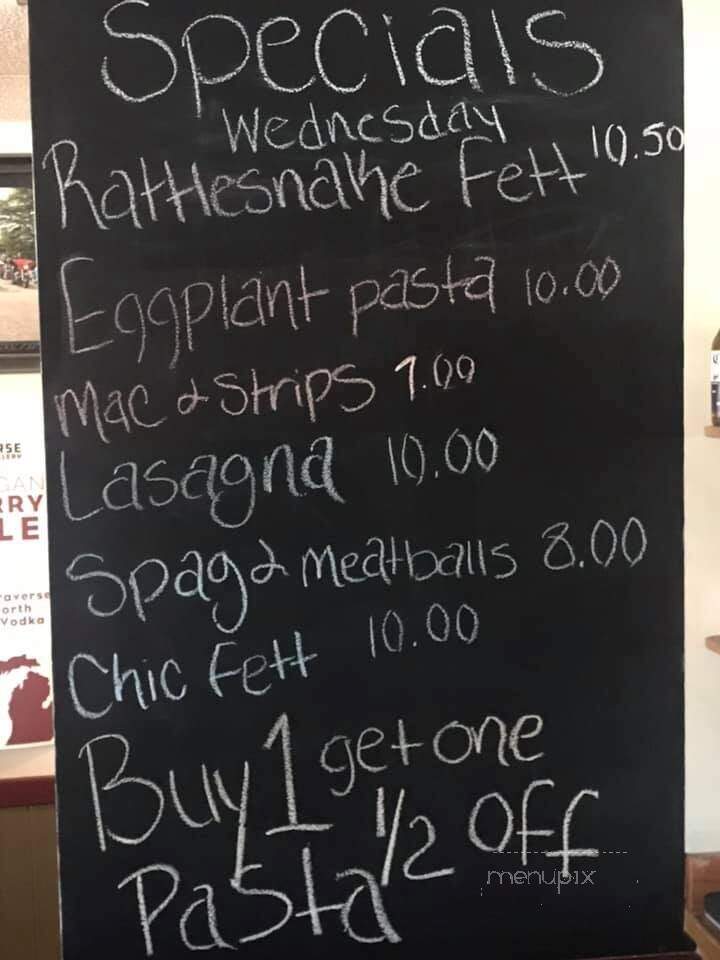 Specials
Wednesday
Rattlesnake Fett 10.50
Eggplant pasta 10.00
Mac & Strips 7.00
Lasagna 10.00
Spag & Meatballs 8.00
Chic Fett 10.00
Buy 1 get one
1/2 off
Pasta
menupix
RRY
LE
raverse
orth
Vodka